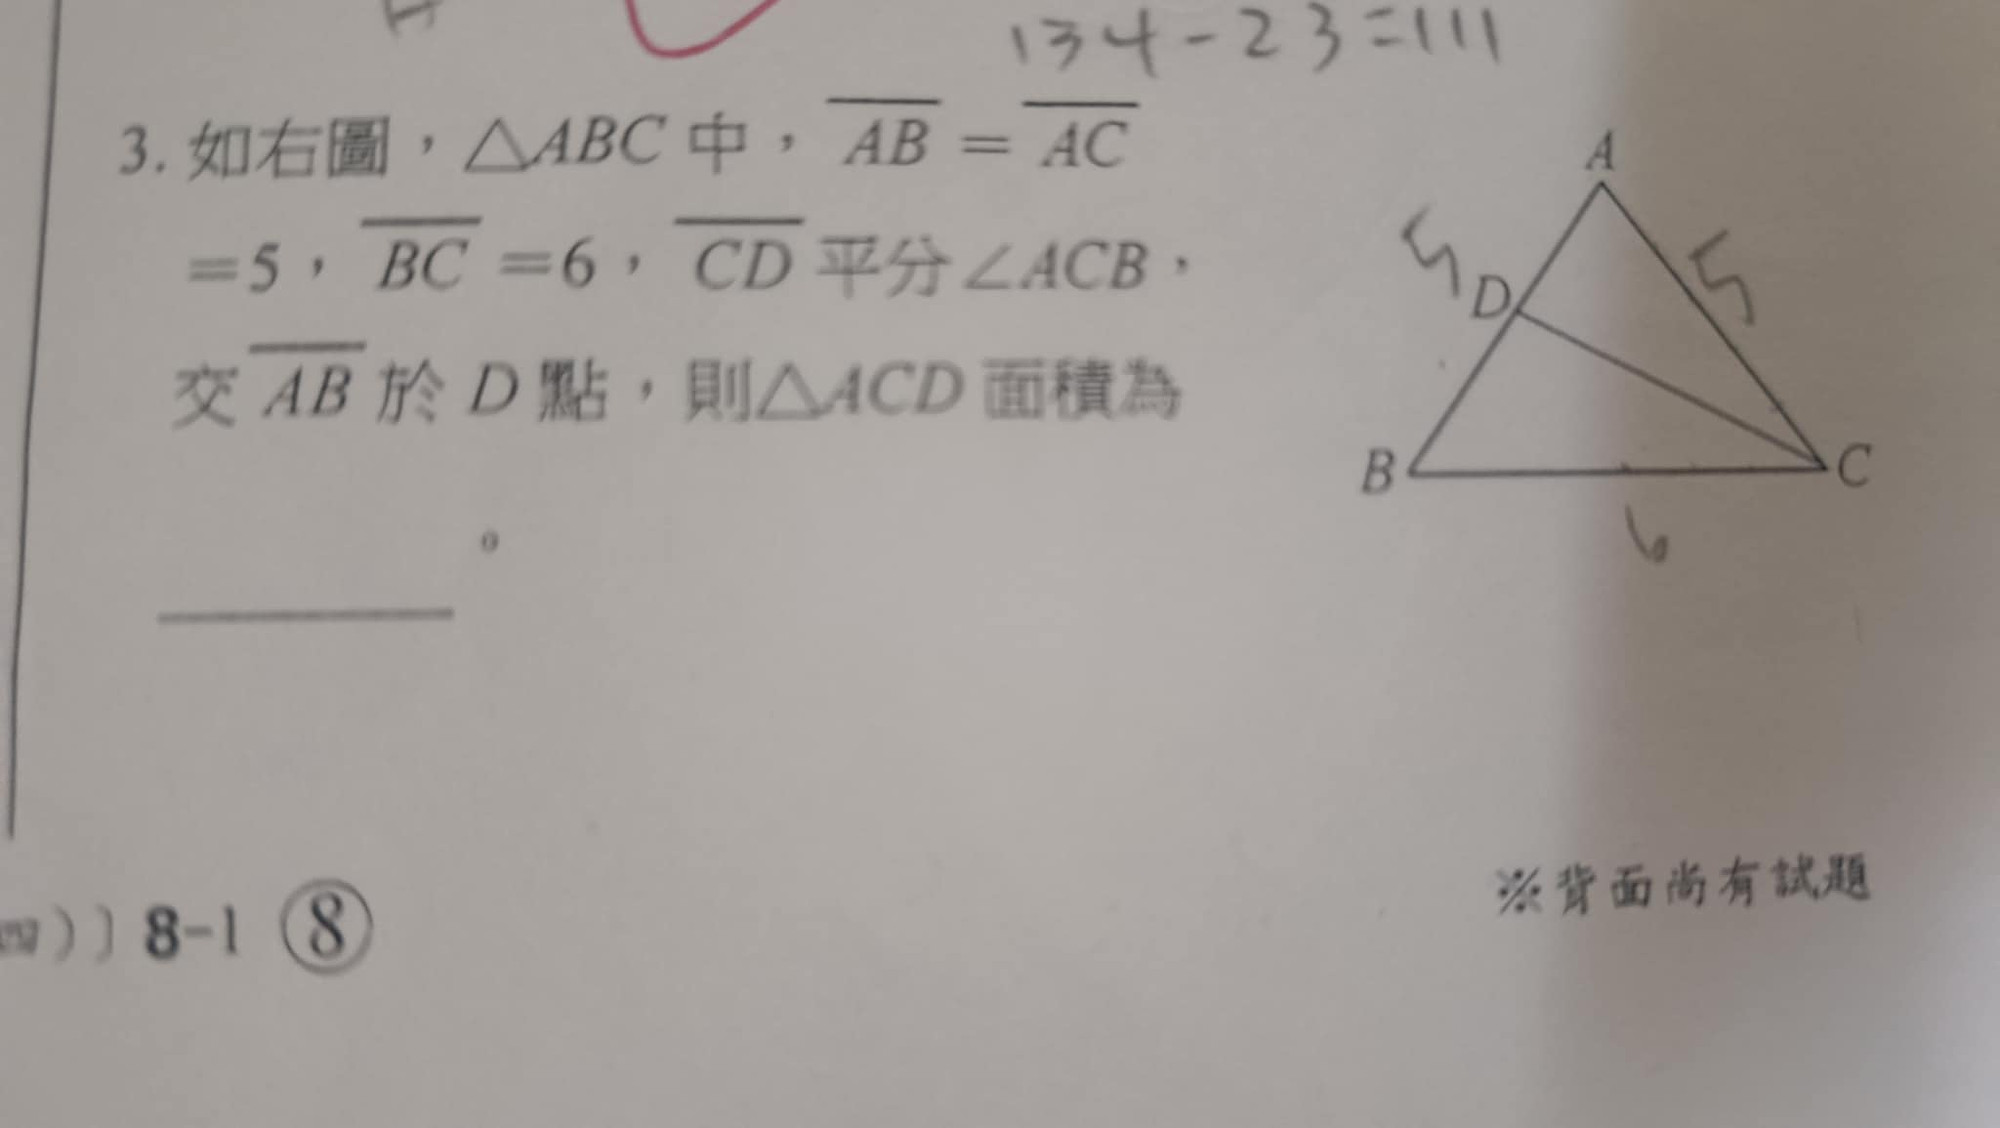 134-23=111
3. 如右圖，△ABC 中，AB = AC
=5，BC =6，CD 平分∠ACB，
交 AB 於 D 點，則△ACD 面積為
。
A
5
5
D
B
C
6
四）） 8-1 ⑧
※背面尚有試題